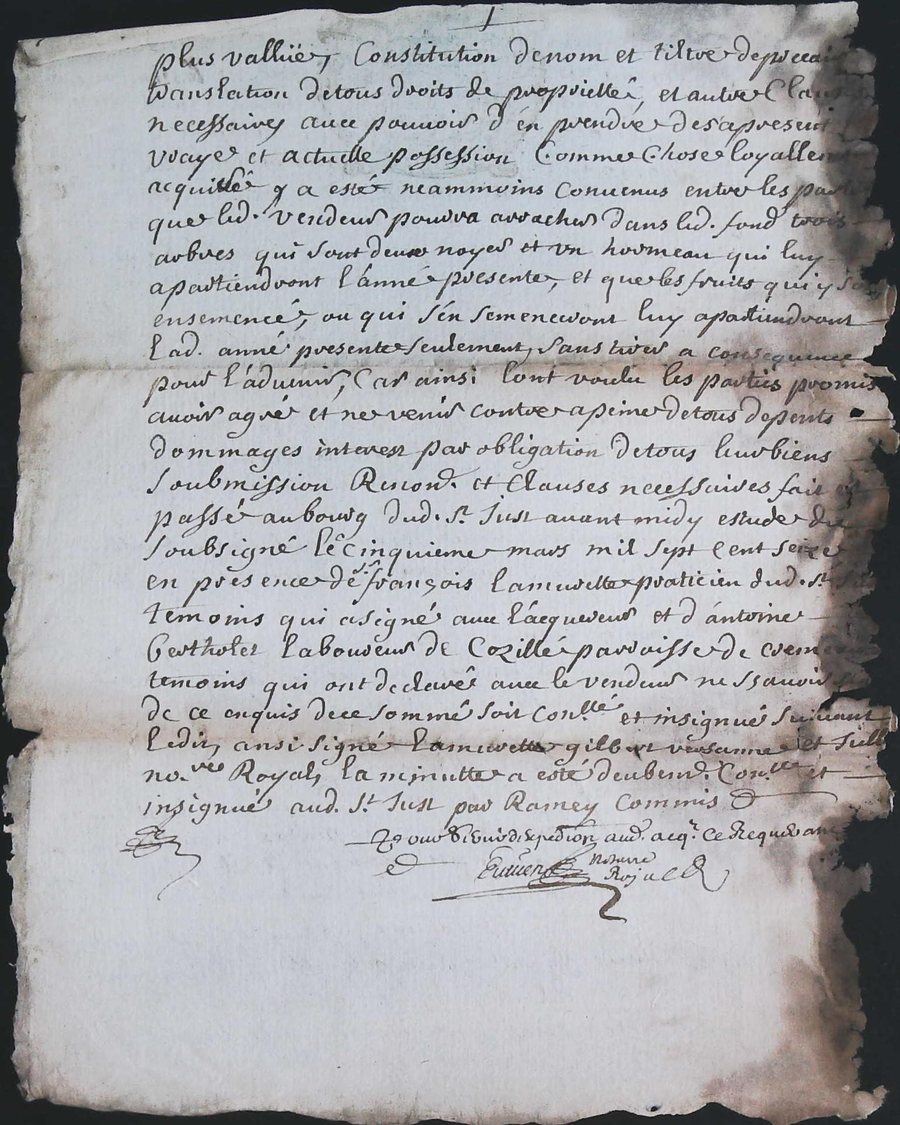 plus vallüe, Constitution de nom et tiltre de precaire
translation de tous droits de proprietté, et autre Claus
necessaires avec pouvoir d'en prendre des apresent
vraye et actuelle possession Comme Chose loyallem
acquitté y a esté neammoins Convenus entre les part
que led. vendeur pourra arracher dans led. fond trois
arbres qui sont deux noyer et un hormeau qui luy
apartiendront l'anné presente, et que les fruits qui y s
ensemencé, ou qui s'en semeneront luy apartiendront
lad. anné presente seulement, sans tirer a consequence
pour l'advenir, Car ainsi l'ont voulu les parties promis
avoir agré et ne venir contre a peine de tous depents
dommages interest par obligation de tous leur biens
soubmission Renon. et Clauses necessaires fait et
passé au bourg dud. st. Just avant midy estude du
soubsigné le cinquieme mars mil sept Cent seize
en presence de sr. françois Lamurette praticien dud. st.
temoins qui a signé avec l'acquereur et d'antoine
Bertholet laboureur de Cozillé parroisse de creme
temoins qui ont declaré avec le vendeur ne sçavoir
de ce enquis dece sommé soit Con.llé et insignué suivant
ledit, ansi signé Lamurette gilbert versanne et
no.re Royal, la minutte a esté deubem. Con.llé et
insignué aud. st. Just par Ramey Commis
Pour d'expedion aud. acq.r ce Requerant
Notaire
Royal